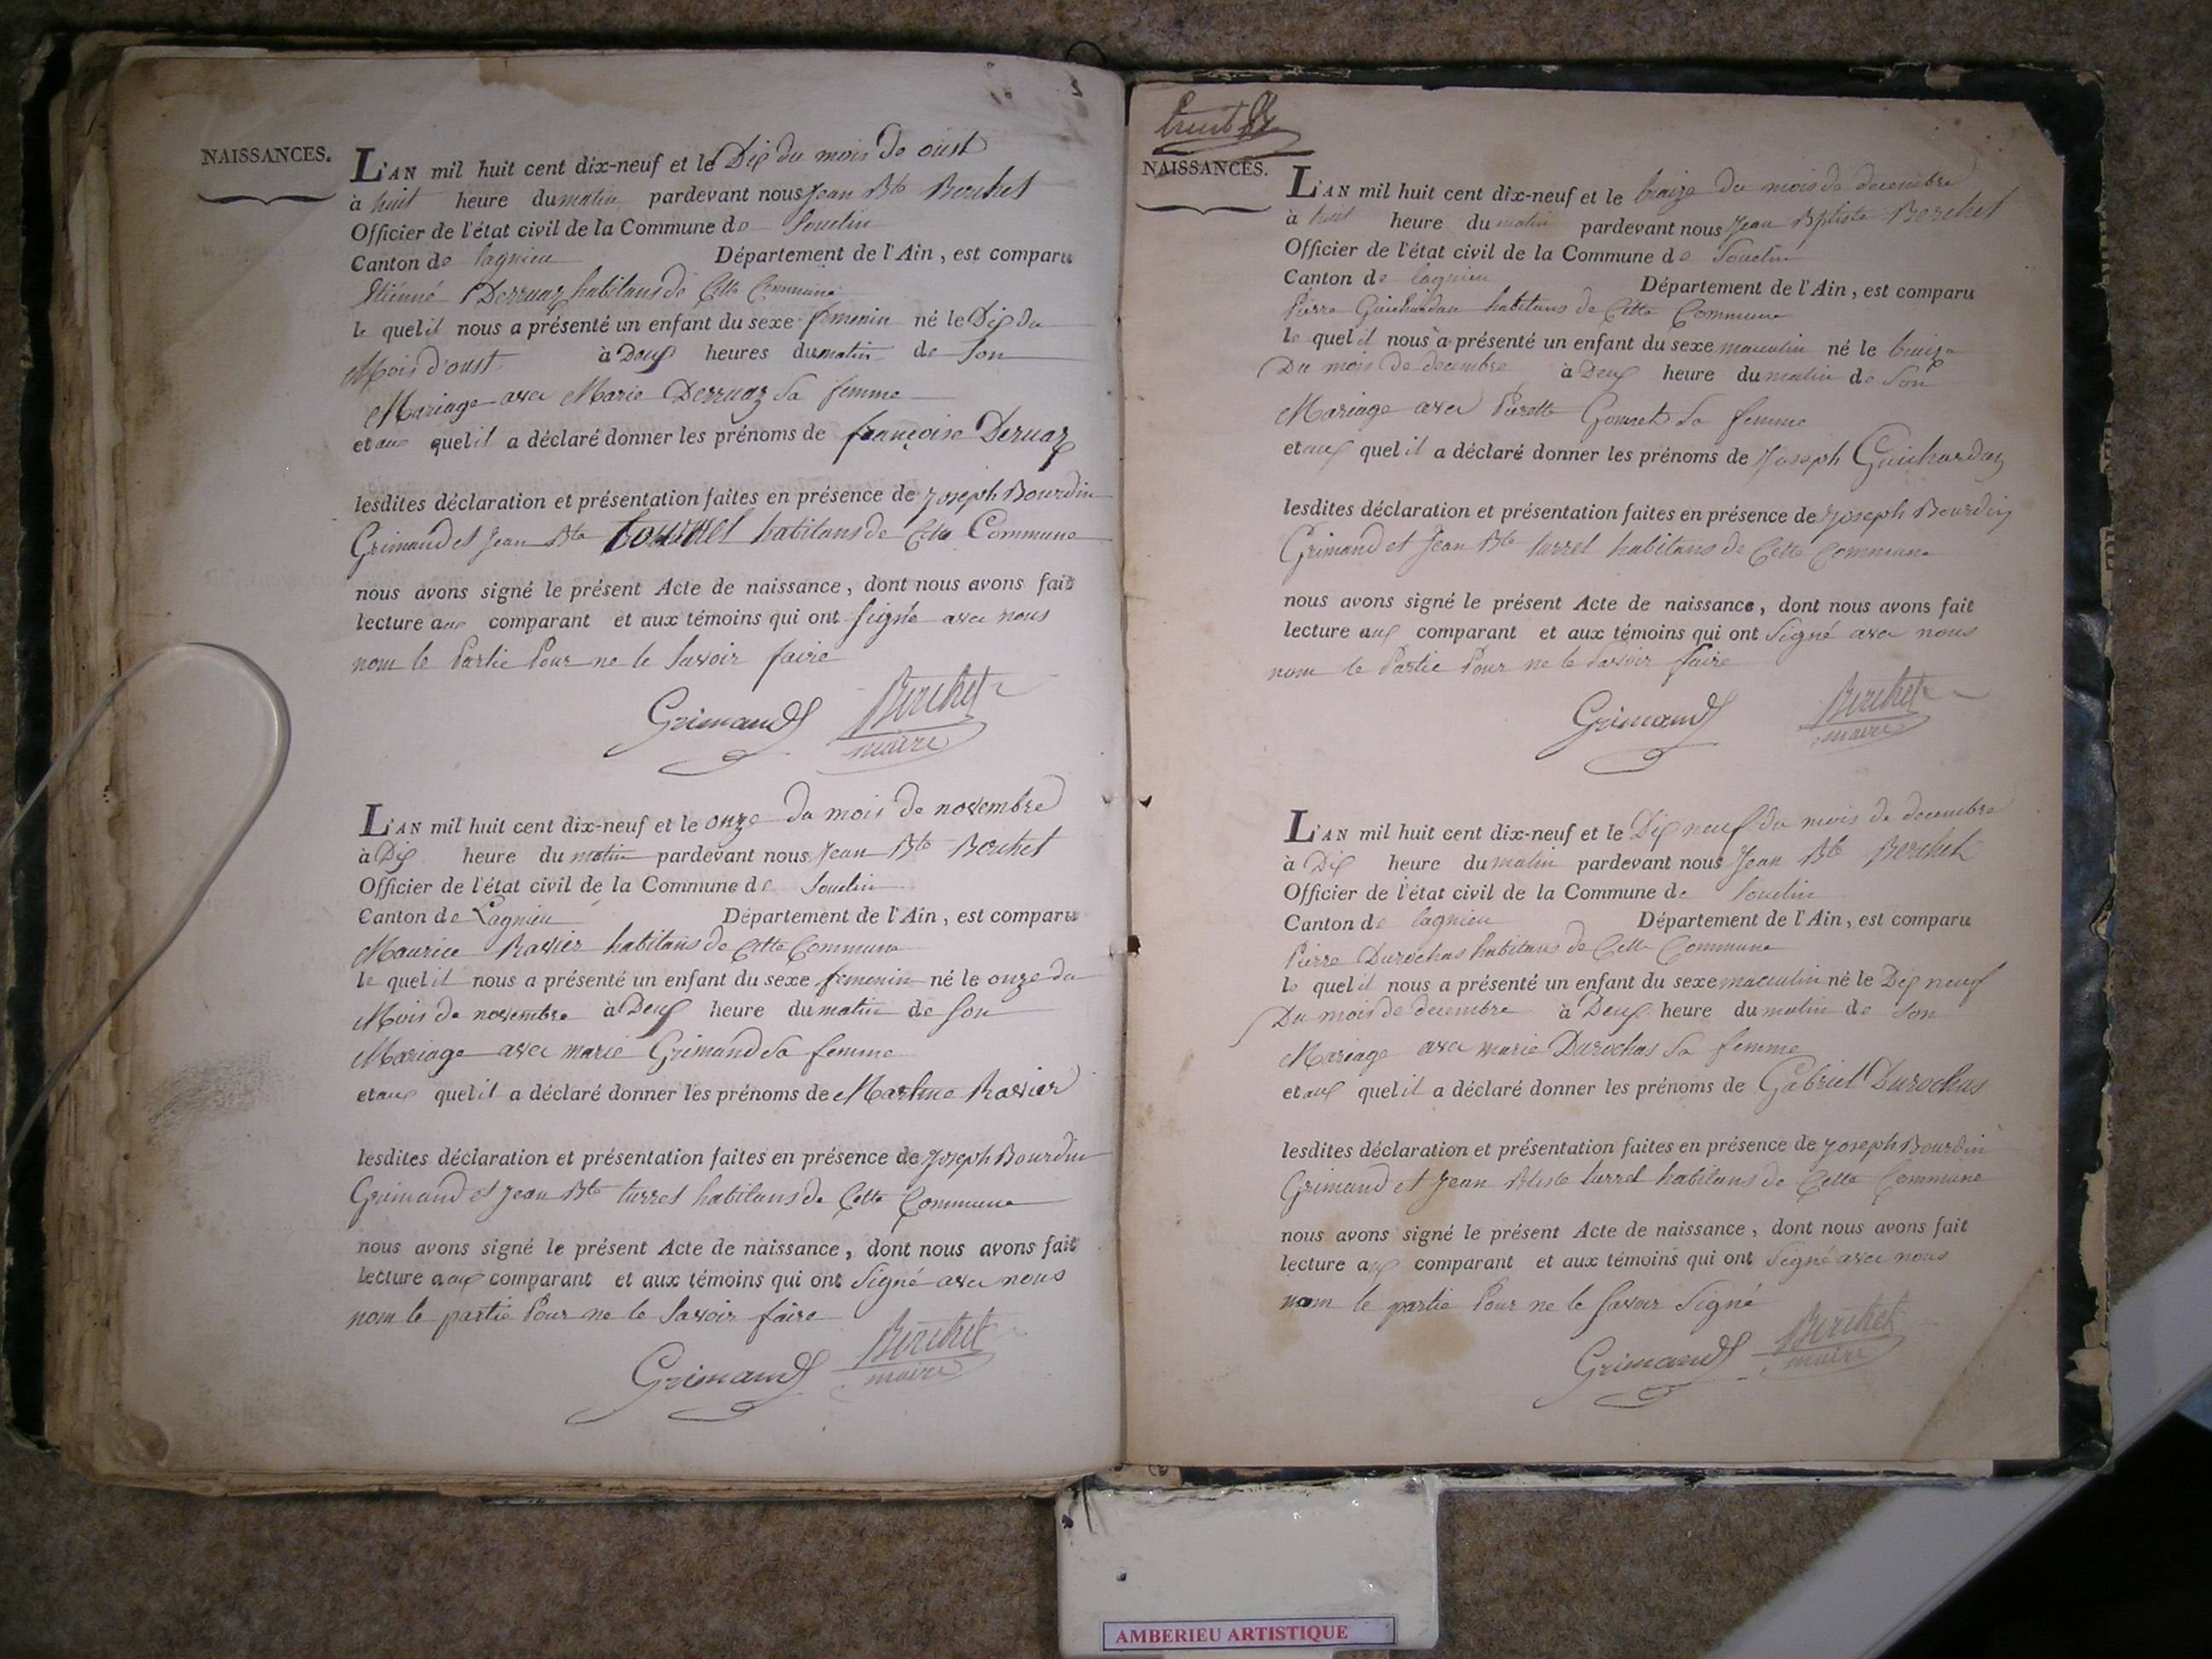 NAISSANCES.
L'AN mil huit cent dix-neuf et le Dix du mois de oust
à huit heure du matin pardevant nous Jean Bte Berchet
Officier de l'état civil de la Commune de Souclin
Canton de lagnieu Département de l'Ain, est comparu
Etienné Derruaz habitans de Cette Commune
le quel il nous a présenté un enfant du sexe femenin né le Dix du
Mois d'oust à Deux heures du matin de Son
Mariage avec Marie Derruaz Sa femme
et aux quel il a déclaré donner les prénoms de françoise Deruaz
lesdites déclaration et présentation faites en présence de Joseph Bourdin
Grimand et Jean Bte habitans de Cette Commune
nous avons signé le présent Acte de naissance, dont nous avons fait
lecture aux comparant et aux témoins qui ont Signé avec nous
nom le Partie Pour ne le Savoir faire
Grimand Berchet
maire
L'AN mil huit cent dix-neuf et le onze du mois de novembre
à Dix heure du matin pardevant nous Jean Bte Berchet
Officier de l'état civil de la Commune de Souclin
Canton de Lagnieu Département de l'Ain, est comparu
Maurice Ravier habitans de Cette Commune
le quel il nous a présenté un enfant du sexe femenin né le onze du
Mois de novembre à Deux heure du matin de Son
Mariage avec marie Grimand Sa femme
et aux quel il a déclaré donner les prénoms de Ravier
lesdites déclaration et présentation faites en présence de Joseph Bourdin
Grimand et Jean Bte turrel habitans de Cette Commune
nous avons signé le présent Acte de naissance, dont nous avons fait
lecture a aux comparant et aux témoins qui ont Signé avec nous
nom le partie Pour ne le Savoir faire
Grimand Berchet
maire
NAISSANCES.
L'AN mil huit cent dix-neuf et le traize du mois de decembre
à huit heure du matin pardevant nous Jean Bptiste Berchet
Officier de l'état civil de la Commune de Souclin
Canton de lagnieu Département de l'Ain, est comparu
Pierre Guichardan habitans de Cette Commune
le quel il nous a présenté un enfant du sexe masculin né le traize
Du mois de decembre à Deux heure du matin de Son
Mariage avec Pierette Sa femme
et aux quel il a déclaré donner les prénoms de Joseph Guichardan
lesdites déclaration et présentation faites en présence de Joseph Bourdin
Grimand et Jean Bte turrel habitans de Cette Commune
nous avons signé le présent Acte de naissance, dont nous avons fait
lecture aux comparant et aux témoins qui ont Signé avec nous
nom le Partie Pour ne le Savoir faire
Grimand Berchet
maire
L'AN mil huit cent dix-neuf et le Dix neuf du mois de decembre
à Dix heure du matin pardevant nous Jean Bte Berchet
Officier de l'état civil de la Commune de Souclin
Canton de lagnieu Département de l'Ain, est comparu
Pierre Durochas habitans de Cette Commune
le quel il nous a présenté un enfant du sexe masculin né le Dix neuf
Du mois de decembre à Deux heure du matin de Son
Mariage avec marie Durochas Sa femme
et aux quel il a déclaré donner les prénoms de Gabriel Durochas
lesdites déclaration et présentation faites en présence de Joseph Bourdin
Grimand et Jean Btiste turrel habitans de Cette Commune
nous avons signé le présent Acte de naissance, dont nous avons fait
lecture aux comparant et aux témoins qui ont Signé avec nous
nom le partie Pour ne le Savoir Signé
Grimand Berchet
maire
AMBERIEU ARTISTIQUE